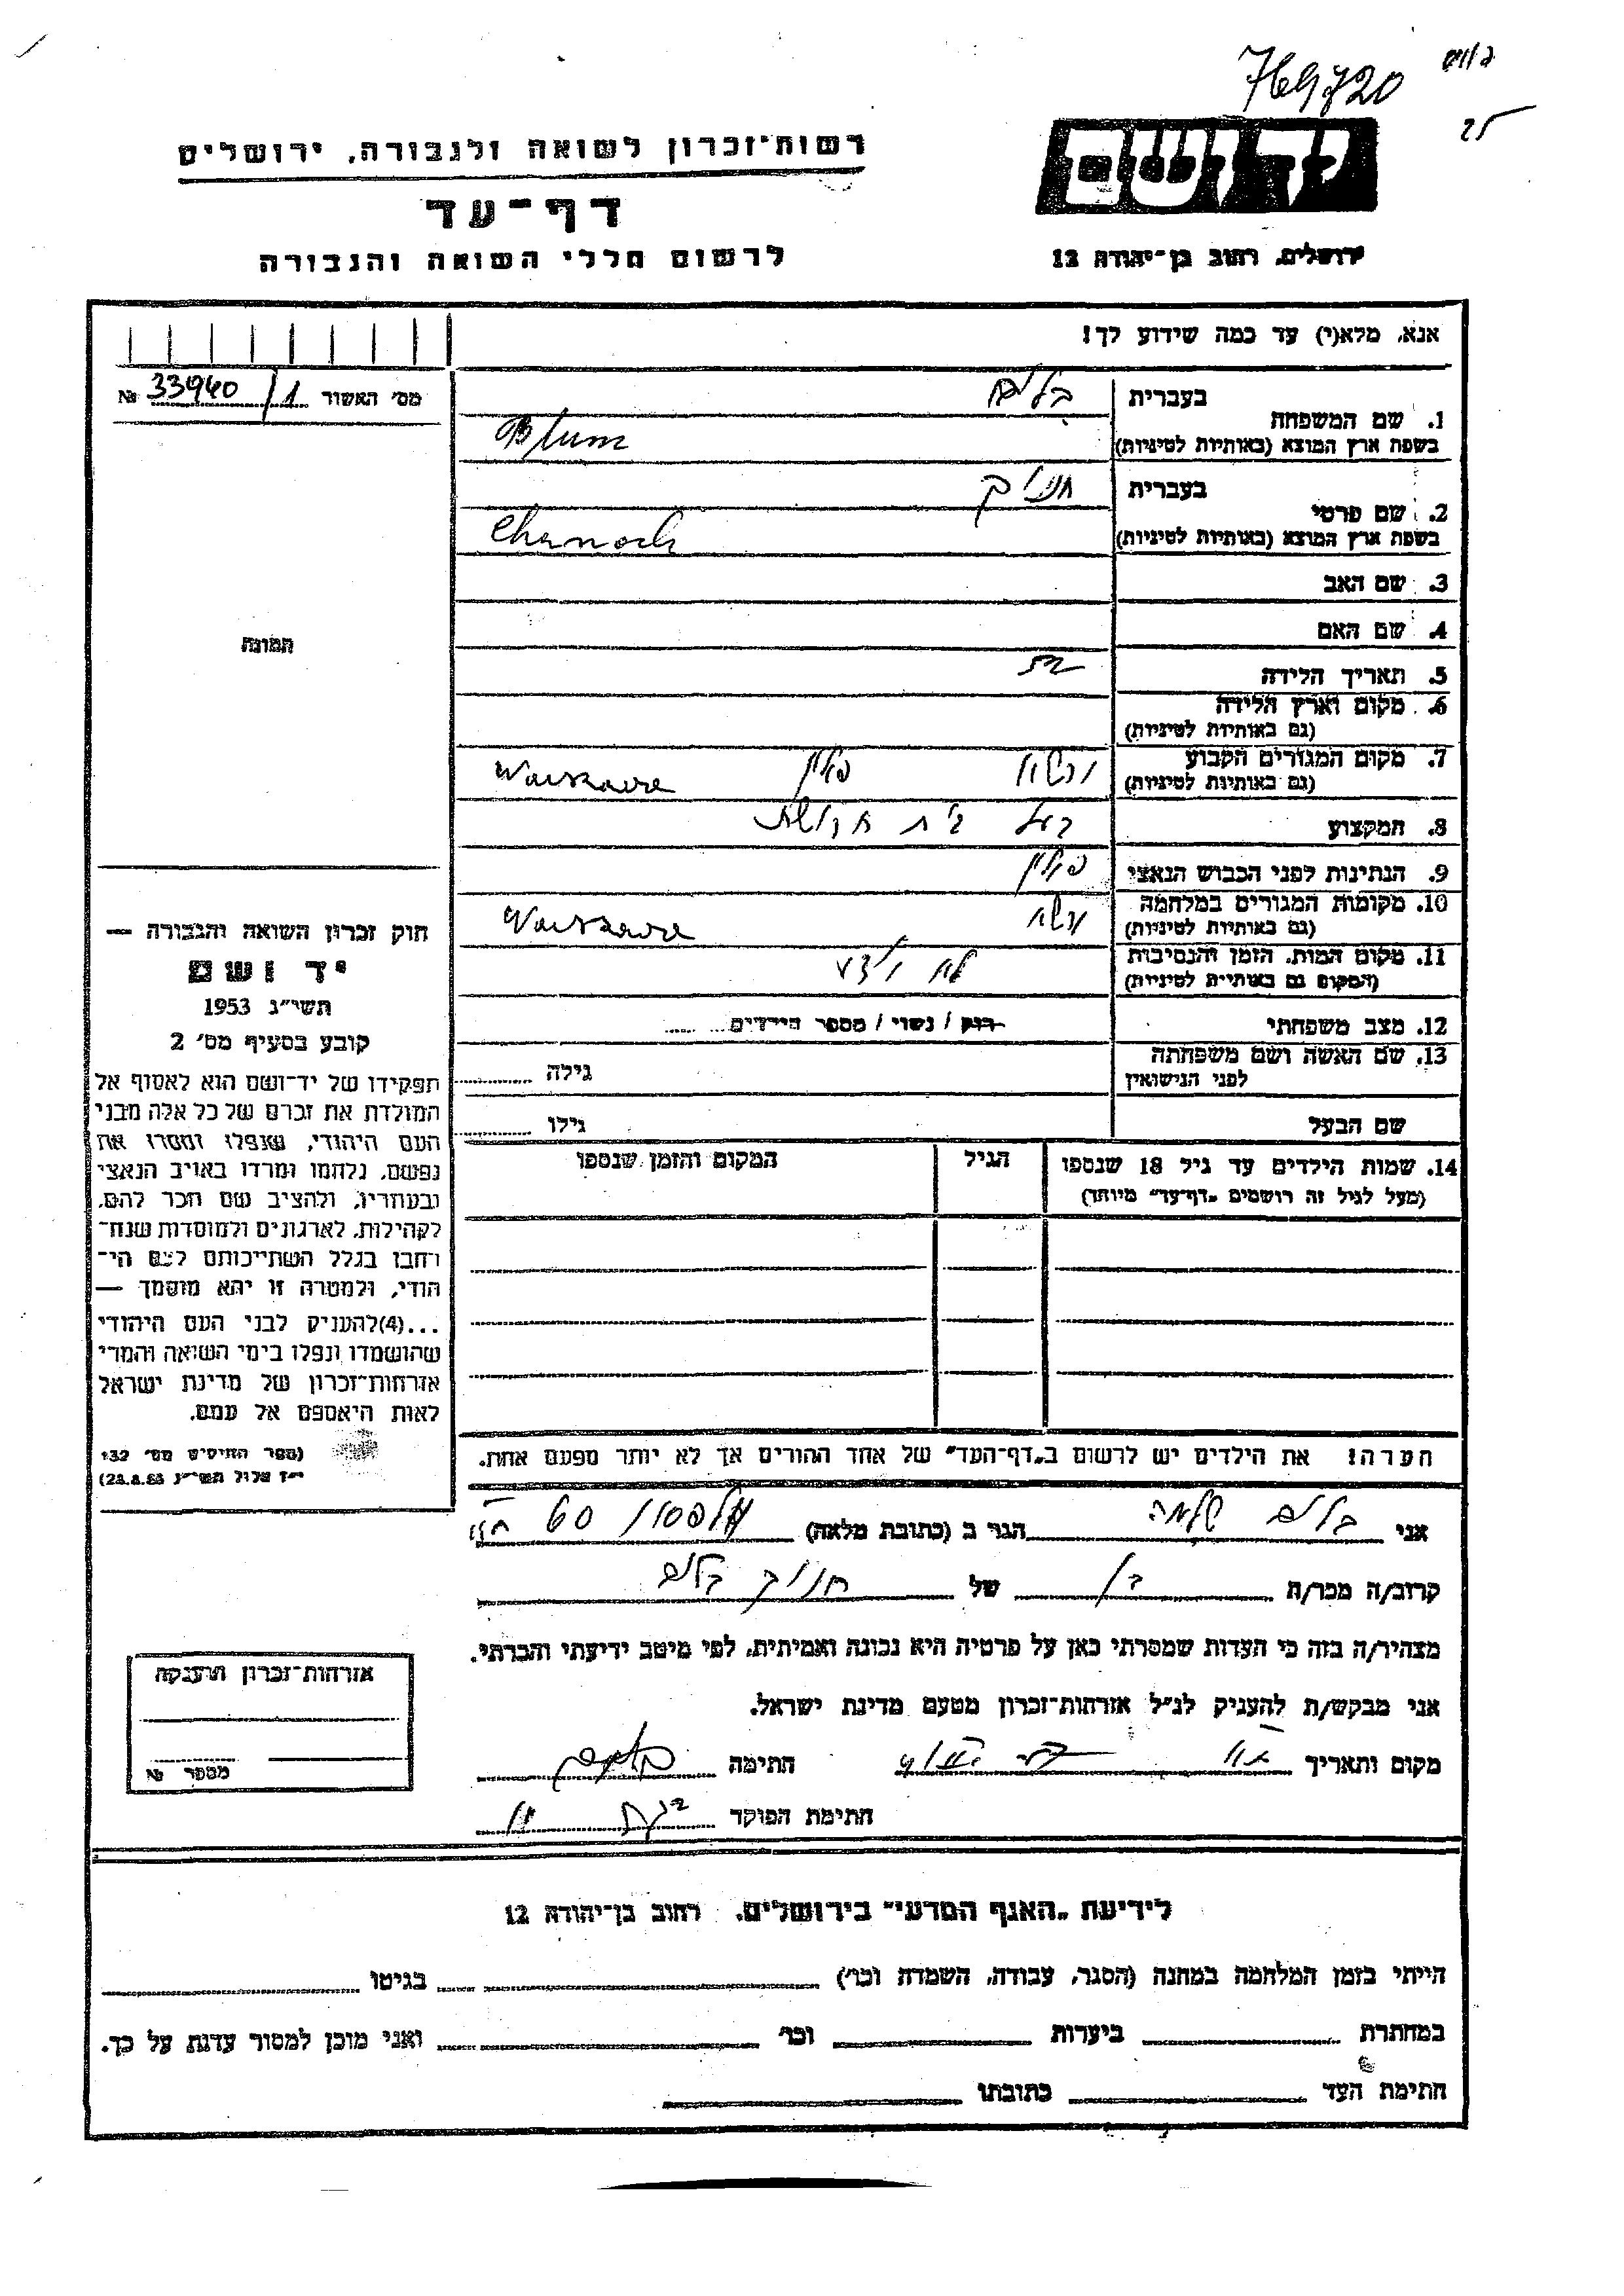 769720
25
רשות־זכרון לשואה ולגבורה, ירושלים
יד ושם
דף־עד
לרשום חללי השואה והגבורה
ירושלים, רחוב בן־יהודה 12
אנא, מלא(י) עד כמה שידוע לך!
מס׳ האשור 33940/1 №
1. שם המשפחה
בעברית בלום
בשפת ארץ המוצא (באותיות לטיניות) Blum
2. שם פרטי
בעברית חנוך
בשפת ארץ המוצא (באותיות לטיניות) Chanoch
3. שם האב
4. שם האם
תמונה
5. תאריך הלידה
6. מקום וארץ הלידה
(גם באותיות לטיניות)
7. מקום המגורים הקבוע ורשה פולין Warszawa
(גם באותיות לטיניות)
8. המקצוע בעל בית חרושת
9. הנתינות לפני הכבוש הנאצי פולין
10. מקומות המגורים במלחמה ורשה Warszawa
(גם באותיות לטיניות)
11. מקום המות, הזמן והנסיבות לא ידוע
(המקום גם באותיות לטיניות)
12. מצב משפחתי רוק / נשוי / מספר הילדים
13. שם האשה ושם משפחתה
לפני הנישואין גילה
שם הבעל גילו
14. שמות הילדים עד גיל 18 שנספו
(מעל לגיל זה רושמים „דף־עד״ מיוחד)
הגיל
המקום והזמן שנספו
הערה! את הילדים יש לרשום ב„דף־העד״ של אחד ההורים אך לא יותר מפעם אחת.
חוק זכרון השואה והגבורה —
יד ושם
תשי״ג 1953
קובע בסעיף מס׳ 2
תפקידו של יד־ושם הוא לאסוף אל
המולדת את זכרם של כל אלה מבני
העם היהודי, שנפלו ומסרו את
נפשם, נלחמו ומרדו באויב הנאצי
ובעוזריו, ולהציב שם וזכר להם,
לקהילות, לארגונים ולמוסדות שנח־
רחבו בגלל השתייכותם לעם הי־
הודי, ולמטרה זו יהא מוסמך —
...(4)להעניק לבני העם היהודי
שהושמדו ונפלו בימי השואה והמרי
אזרחות־זכרון של מדינת ישראל
לאות היאספם אל עמם.
(ספר החוקים מס׳ 132
י״ז אלול תשי״ג 28.8.53)
אני בלום שלמה הגר ב (כתובת מלאה) 60
קרוב/ה מכר/ה בן של חנוך בלום
מצהיר/ה בזה כי העדות שמסרתי כאן על פרטיה היא נכונה ואמיתית, לפי מיטב ידיעתי והכרתי.
אני מבקש/ת להעניק לנ״ל אזרחות־זכרון מטעם מדינת ישראל.
מקום ותאריך חתימה
חתימת הפוקד
אזרחות־זכרון הוענקה
מספר №
לידיעת „האגף המדעי״ בירושלים, רחוב בן־יהודה 12
הייתי בזמן המלחמה במחנה (הסגר, עבודה, השמדה וכו׳) בגיטו
במחתרת ביערות וכו׳ ואני מוכן למסור עדות על כך.
חתימת העד כתובתו